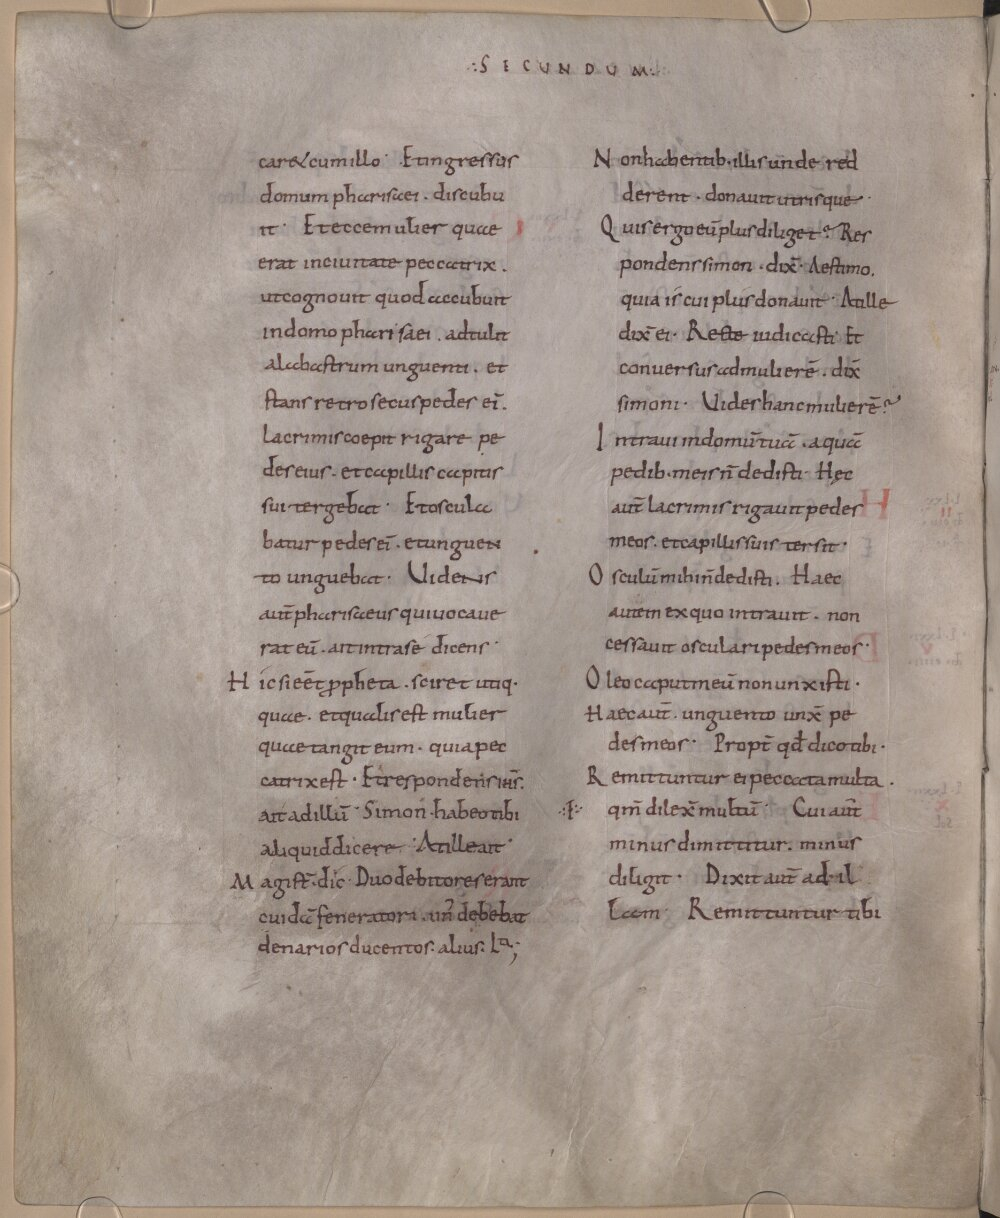 ·:SECUNDUM:·
car&cumillo· Etingressus
domum pharisaei· discubu
it· Et eccemulier quae
erat inciuitate peccatrix·
utcognouit quod accubuit
indomo pharisaei· adtulit
alabastrum unguenti· et
stans retrosecuspedes ei̅·
Lacrimiscoepit rigare pe
deseius· etcapillis capitis
sui tergebat· Etoscula
batur pedes ei̅· etunguen
to unguebat· Uidens
aut̅pharisaeus quiuocaue
rat eu̅· aitintrase dicens·
Hic si ee̅t ꝓpheta· sciret utiq·
quae· etqualisest mulier
quaetangit eum· quiapec
catrixest· Etrespondens ih̅s·
ait adillu̅· Simon·habeotibi
aliquiddicere· Atilleait·
Magist̅·dic· Duodebitoreserant
cuida̅ feneratori· un̅ debebat
denarios ducentos· alius· L^ta;
Nonhabentib·illisunde red
derent· donauit utrisque·
Quisergoeu̅plusdiliget? Res
pondenssimon·dix̅· Aestimo,
quia is cui plusdonauit· Atille
dix̅ei· Recte iudicasti· Et
conuersusadmuliere̅· dix̅
simoni· Uideshancmuliere̅?
Intraui indomu̅tua̅· aqua̅
pedib·meisn̅dedisti· Hęc
aut̅ lacrimis rigauitpedes
meos· etcapillissuis tersit·
Osculu̅mihin̅dedisti· Haec
autem exquo intrauit· non
cessauit oscularipedesmeos·
Oleocaputmeu̅nonunxisti·
Haecaut̅· unguento unx̅ pe
desmeos· Propt̅ qd̅ dicotibi·
Remittuntur eipeccatamulta·
qm̅ dilex̅multu̅· Cui aut̅
minusdimittitur· minus
diligit· Dixitaut̅ ad·il
Lam· Remittuntur tibi